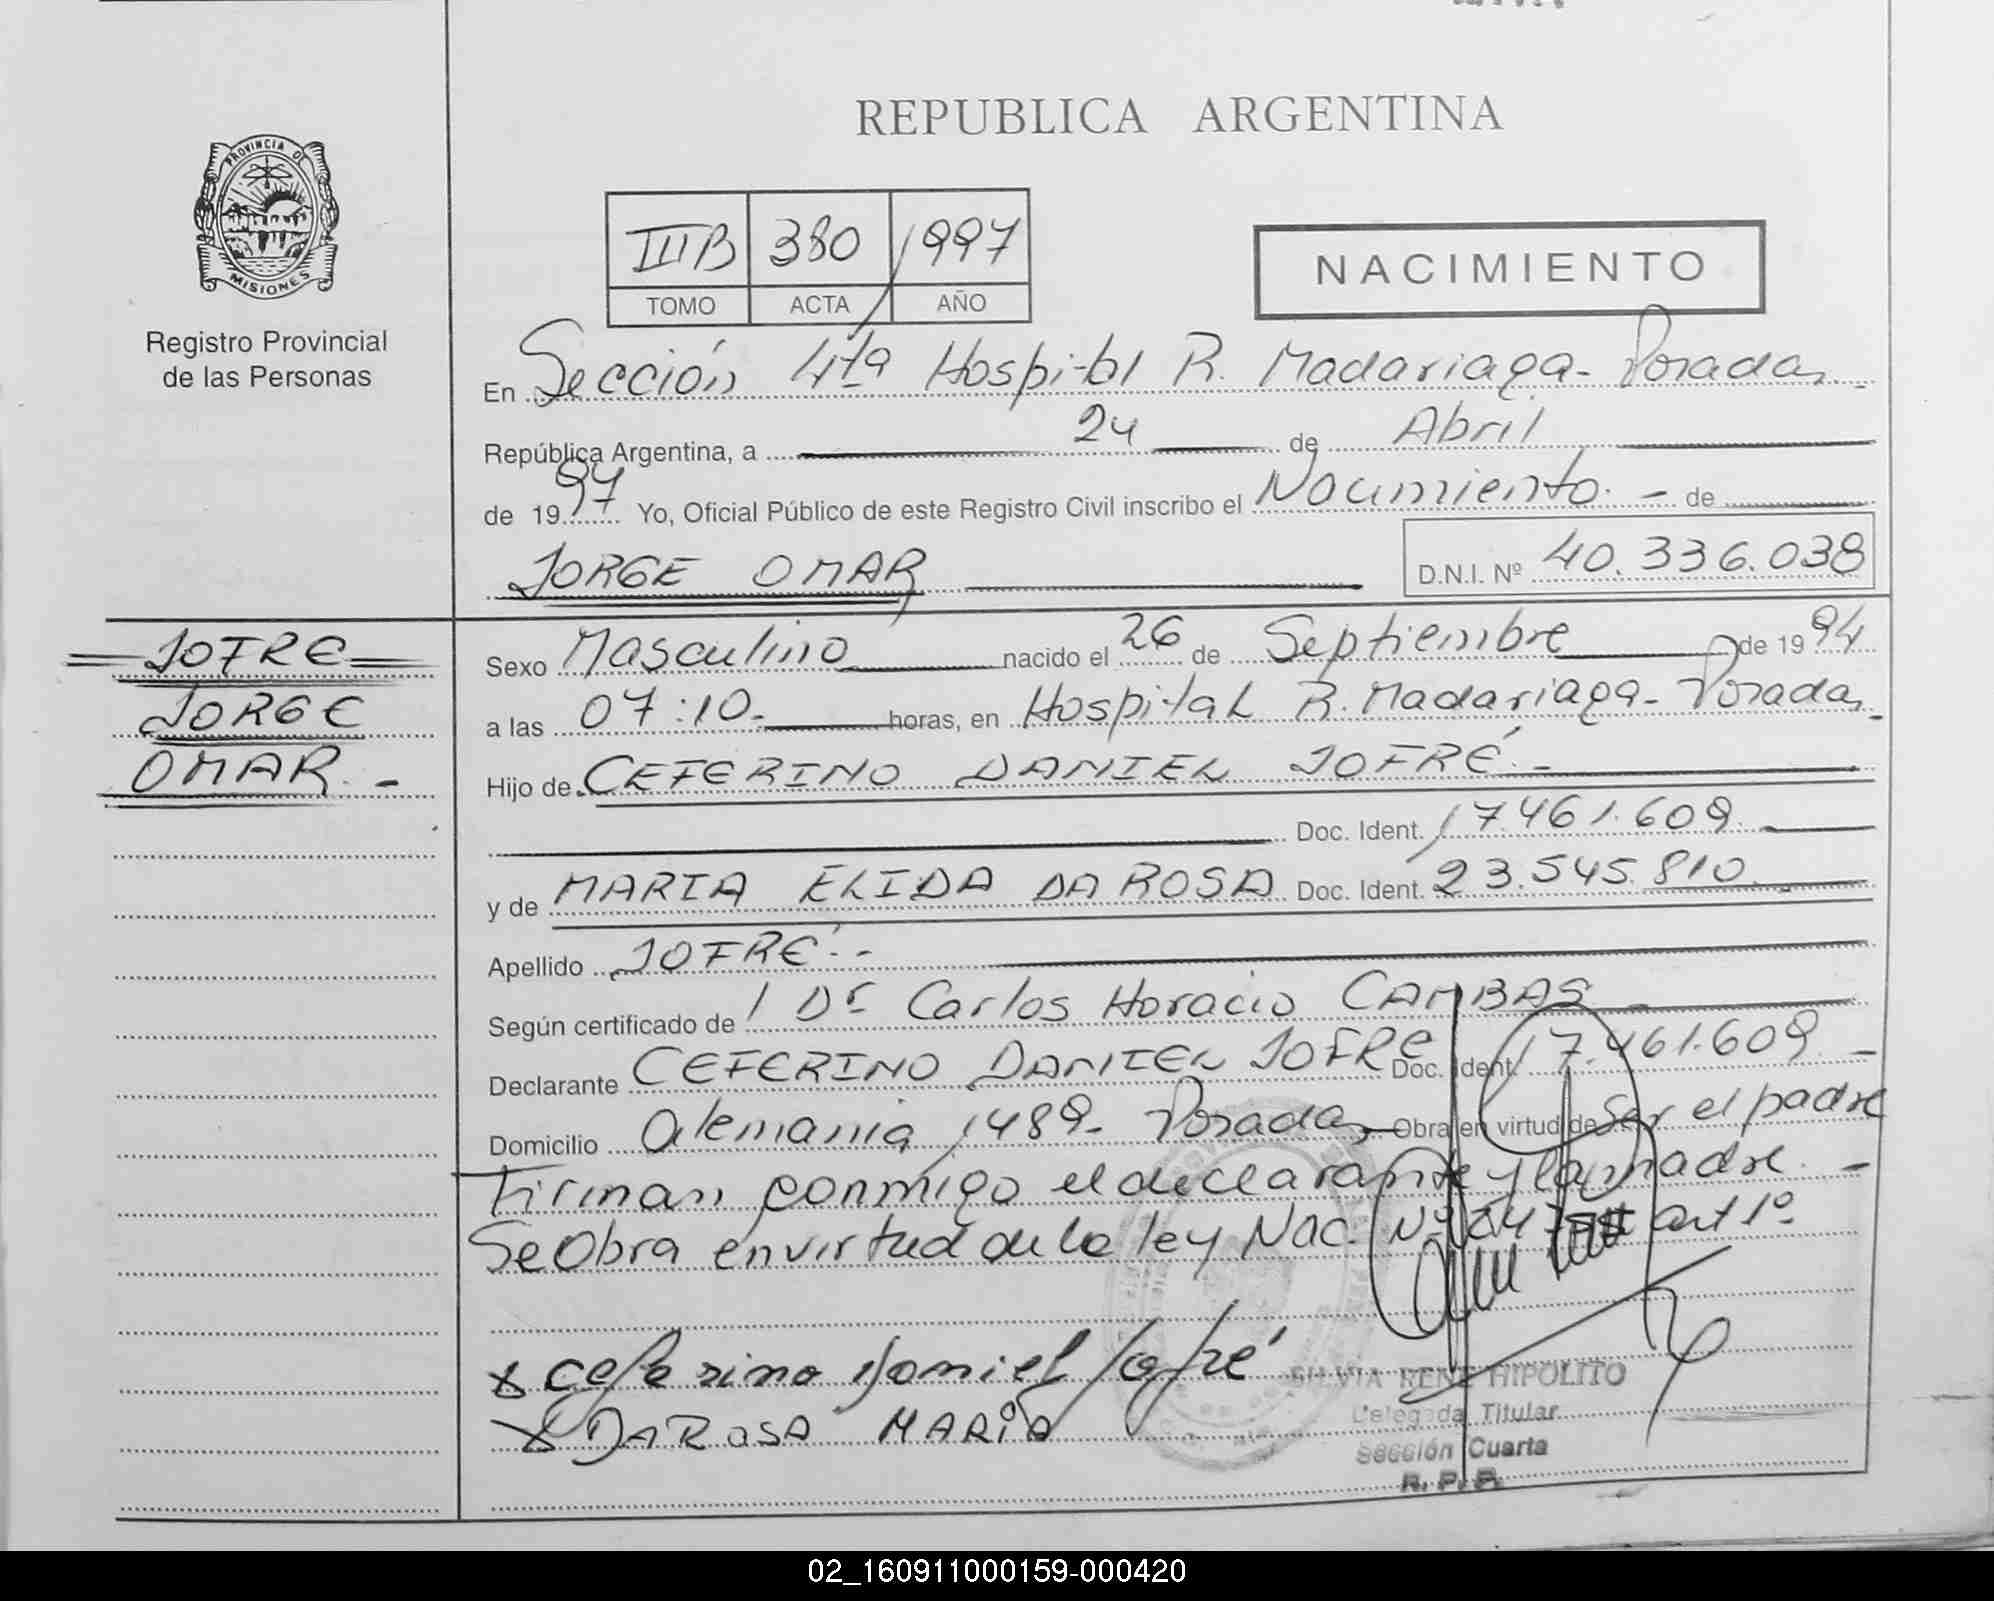 REPUBLICA ARGENTINA
PROVINCIA DE
MISIONES
Registro Provincial
de las Personas
IIIB 380 1997
TOMO ACTA AÑO
NACIMIENTO
En Sección 4ta Hospital R. Madariaga - Posadas -
República Argentina, a 24 de Abril
de 1997 Yo, Oficial Público de este Registro Civil inscribo el Nacimiento. - de
JORGE OMAR D.N.I. Nº 40.336.038
JOFRE
JORGE
OMAR. -
Sexo Masculino nacido el 26 de Septiembre de 1994
a las 07:10.- horas, en Hospital R. Madariaga - Posadas -
Hijo de CEFERINO DANIEL JOFRÉ. -
Doc. Ident. 17.461.609.
y de MARIA ELIDA DA ROSA Doc. Ident. 23.545.810
Apellido JOFRÉ. -
Según certificado de 1 Dr Carlos Horacio CAMBAS -
Declarante CEFERINO DANIEL JOFRE Doc. Ident. 17.461.609 -
Domicilio Alemania 1489 - Posadas Obra en virtud de Ser el padre
Firman conmigo el declarante y la madre. -
Se Obra en virtud de la ley Nac. Nº art 1º.
x ceferino Daniel Jofré
x DAROSA MARIA
SILVIA RENE HIPOLITO
Delegada Titular
Sección Cuarta
R. P. P.
02_160911000159-000420